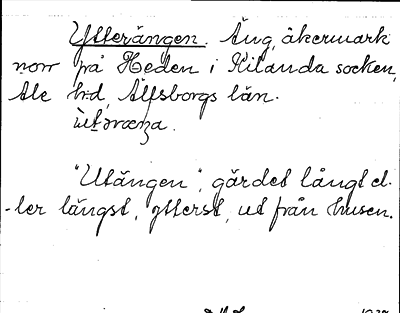 Ytterängen. Äng, åkermark
norr på Heden i Kilanda socken,
Ale hrd, Älfsborgs län.
"Utängen", gärdet långt el-
-ler längst, ytterst, ut från husen.